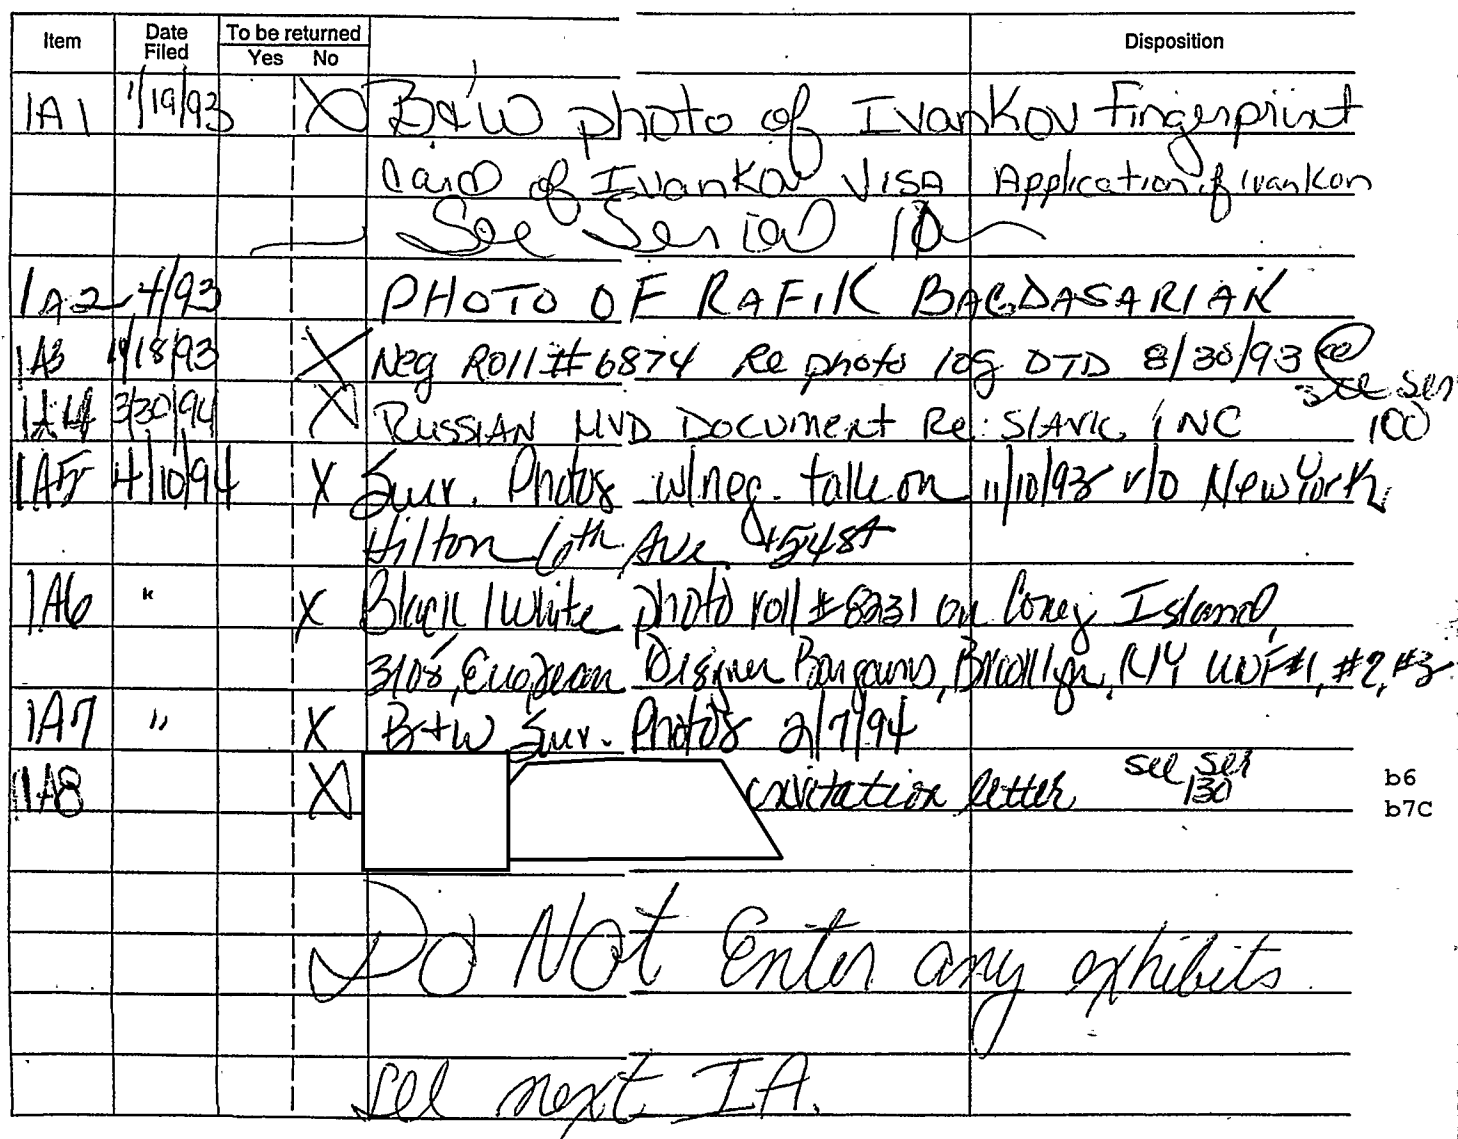 Item Date Filed To be returned Yes No Disposition
1A1 1/19/93 X B&W photo of Ivankov Fingerprint
Card of Ivankov VISA Application of Ivankov
See Serial 10
1A2 4/93 PHOTO OF RAFIK BAGDASARIAN
1A3 11/18/93 X Neg Roll #6874 Re photo log DTD 8/30/93
1A4 3/30/94 X RUSSIAN MVD Document Re: SLAVIC INC see ser 100
1A5 4/10/94 X Surr. Photos w/neg. taken on 11/10/93 r/o New York
Hilton 6th Ave + 54St
1A6 " X Black/White photo roll #8231 on Coney Island
3108, European Designer Bargains, Brooklyn, NY UNF#1, #2, #3
1A7 " X B+W Surr. Photos 2/7/94
1A8 X invitation letter see ser 130 b6
b7C
Do Not Enter any exhibits
see next IA.